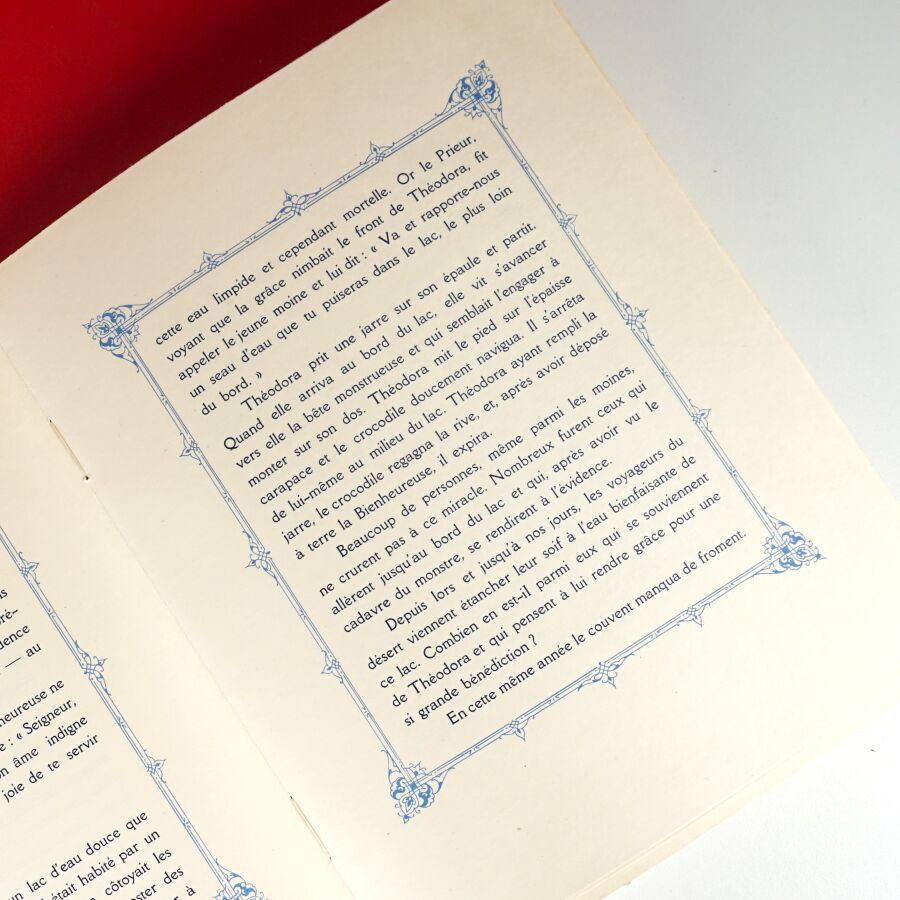 s
ré-
dence
— au
heureuse ne
e : « Seigneur,
on âme indigne
joie de te servir
un lac d'eau douce que
était habité par un
côtoyait les
ster des
r à
cette eau limpide et cependant mortelle. Or le Prieur,
voyant que la grâce nimbait le front de Théodora, fit
appeler le jeune moine et lui dit : « Va et rapporte-nous
un seau d'eau que tu puiseras dans le lac, le plus loin
du bord. »
Théodora prit une jarre sur son épaule et partit.
Quand elle arriva au bord du lac, elle vit s'avancer
vers elle la bête monstrueuse et qui semblait l'engager à
monter sur son dos. Théodora mit le pied sur l'épaisse
carapace et le crocodile doucement navigua. Il s'arrêta
de lui-même au milieu du lac. Théodora ayant rempli la
jarre, le crocodile regagna la rive, et, après avoir déposé
à terre la Bienheureuse, il expira.
Beaucoup de personnes, même parmi les moines,
ne crurent pas à ce miracle. Nombreux furent ceux qui
allèrent jusqu'au bord du lac et qui, après avoir vu le
cadavre du monstre, se rendirent à l'évidence.
Depuis lors et jusqu'à nos jours, les voyageurs du
désert viennent étancher leur soif à l'eau bienfaisante de
ce lac. Combien en est-il parmi eux qui se souviennent
de Théodora et qui pensent à lui rendre grâce pour une
si grande bénédiction ?
En cette même année le couvent manqua de froment.